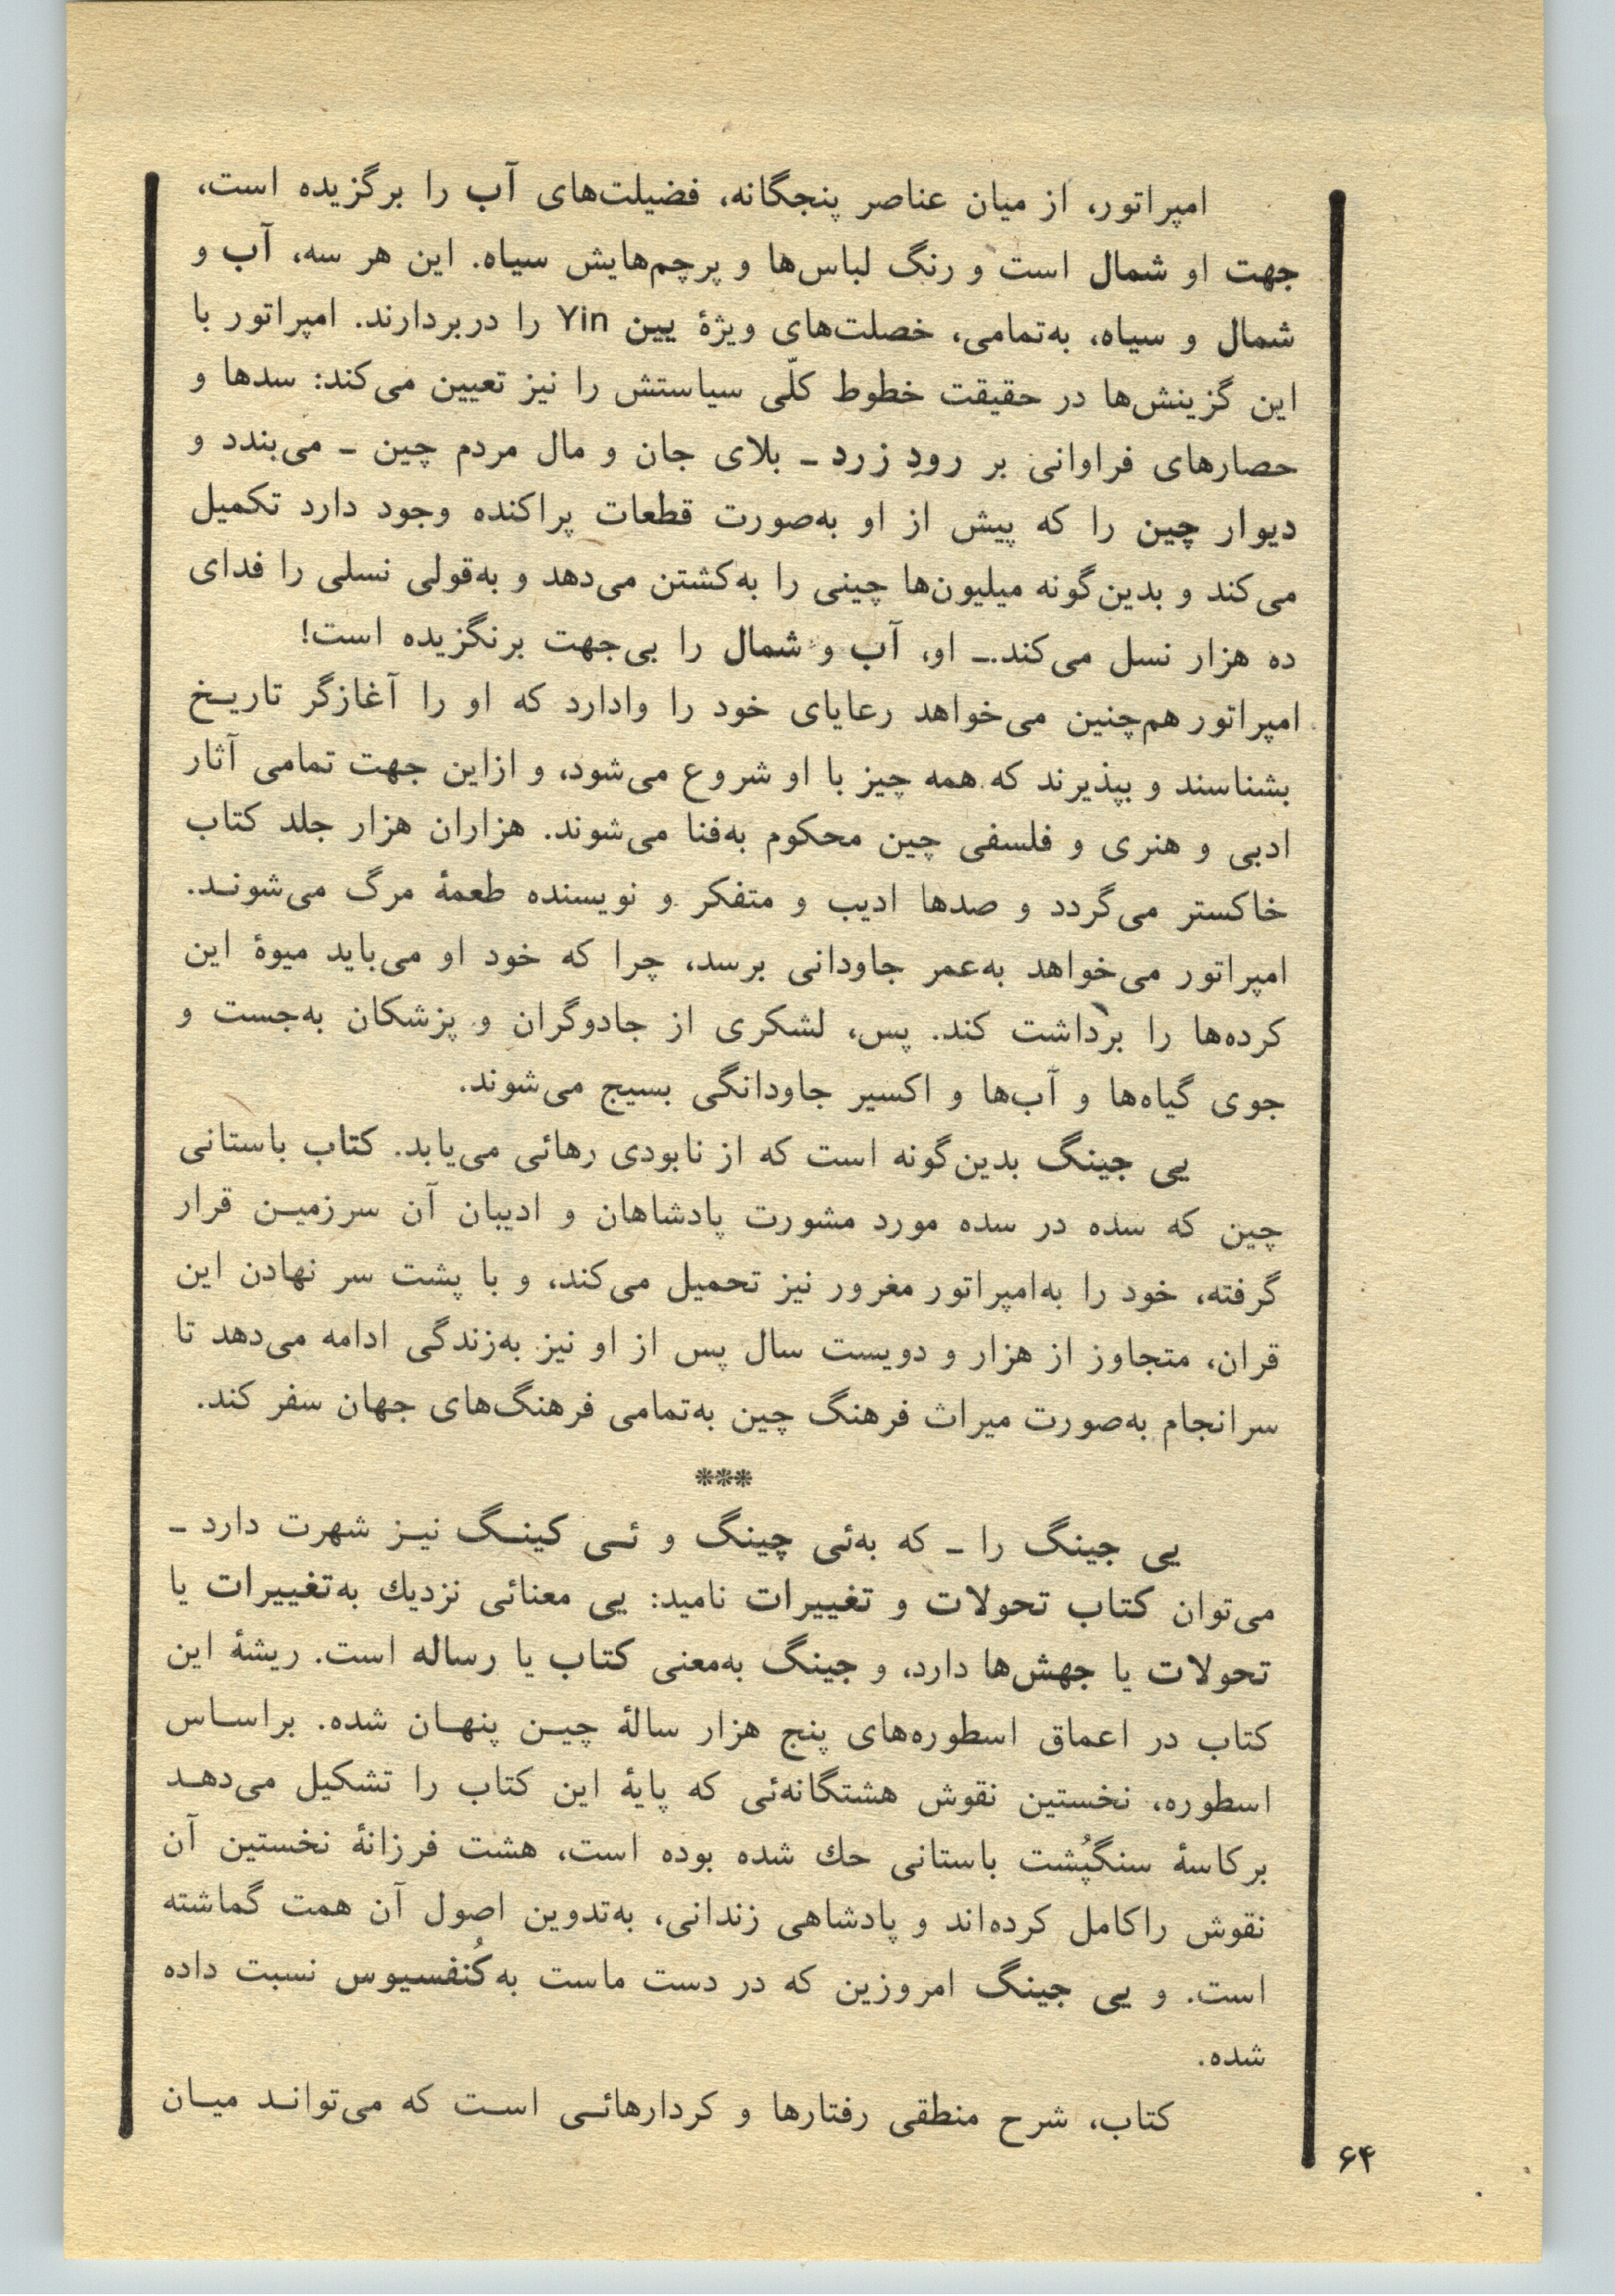 امپراتور، از میان عناصر پنجگانه، فضیلت‌های آب را برگزیده است،
جهت او شمال است و رنگ لباس‌ها و پرچم‌هایش سیاه. این هر سه، آب و
شمال و سیاه، به‌تمامی، خصلت‌های ویژهٔ یین Yin را دربردارند. امپراتور با
این گزینش‌ها در حقیقت خطوط کلّی سیاستش را نیز تعیین می‌کند: سدها و
حصارهای فراوانی بر رودِ زرد ـ بلای جان و مال مردم چین ـ می‌بندد و
دیوار چین را که پیش از او به‌صورت قطعات پراکنده وجود دارد تکمیل
می‌کند و بدین‌گونه میلیون‌ها چینی را به‌کشتن می‌دهد و به‌قولی نسلی را فدای
ده هزار نسل می‌کند.ـ او، آب و شمال را بی‌جهت برنگزیده است!
امپراتور هم‌چنین می‌خواهد رعایای خود را وادارد که او را آغازگر تاریـخ
بشناسند و بپذیرند که همه چیز با او شروع می‌شود، و ازاین جهت تمامی آثار
ادبی و هنری و فلسفی چین محکوم به‌فنا می‌شوند. هزاران هزار جلد کتاب
خاکستر می‌گردد و صدها ادیب و متفکر و نویسنده طعمهٔ مرگ می‌شونـد.
امپراتور می‌خواهد به‌عمر جاودانی برسد، چرا که خود او می‌باید میوهٔ این
کرده‌ها را برداشت کند. پس، لشکری از جادوگران و پزشکان به‌جست و
جوی گیاه‌ها و آب‌ها و اکسیر جاودانگی بسیج می‌شوند.
یی جینگ بدین‌گونه است که از نابودی رهائی می‌یابد. کتاب باستانی
چین که سده در سده مورد مشورت پادشاهان و ادیبان آن سرزمیـن قرار
گرفته، خود را به‌امپراتور مغرور نیز تحمیل می‌کند، و با پشت سر نهادن این
قران، متجاوز از هزار و دویست سال پس از او نیز به‌زندگی ادامه می‌دهد تا
سرانجام به‌صورت میراث فرهنگ چین به‌تمامی فرهنگ‌های جهان سفر کند.
***
یی جینگ را ـ که به‌ئی چینگ و ئـی کینـگ نیـز شهرت دارد ـ
می‌توان کتاب تحولات و تغییرات نامید: یی معنائی نزدیك به‌تغییرات یا
تحولات یا جهش‌ها دارد، و جینگ به‌معنی کتاب یا رساله است. ریشهٔ این
کتاب در اعماق اسطوره‌های پنج هزار سالهٔ چیـن پنهـان شده. براسـاس
اسطوره، نخستین نقوش هشتگانه‌ئی که پایهٔ این کتاب را تشکیل می‌دهـد
برکاسهٔ سنگپُشت باستانی حك شده بوده است، هشت فرزانهٔ نخستین آن
نقوش راکامل کرده‌اند و پادشاهی زندانی، به‌تدوین اصول آن همت گماشته
است. و یی جینگ امروزین که در دست ماست به‌کُنفسیوس نسبت داده
شده.
کتاب، شرح منطقی رفتارها و کردارهائـی اسـت که می‌توانـد میـان
۶۴